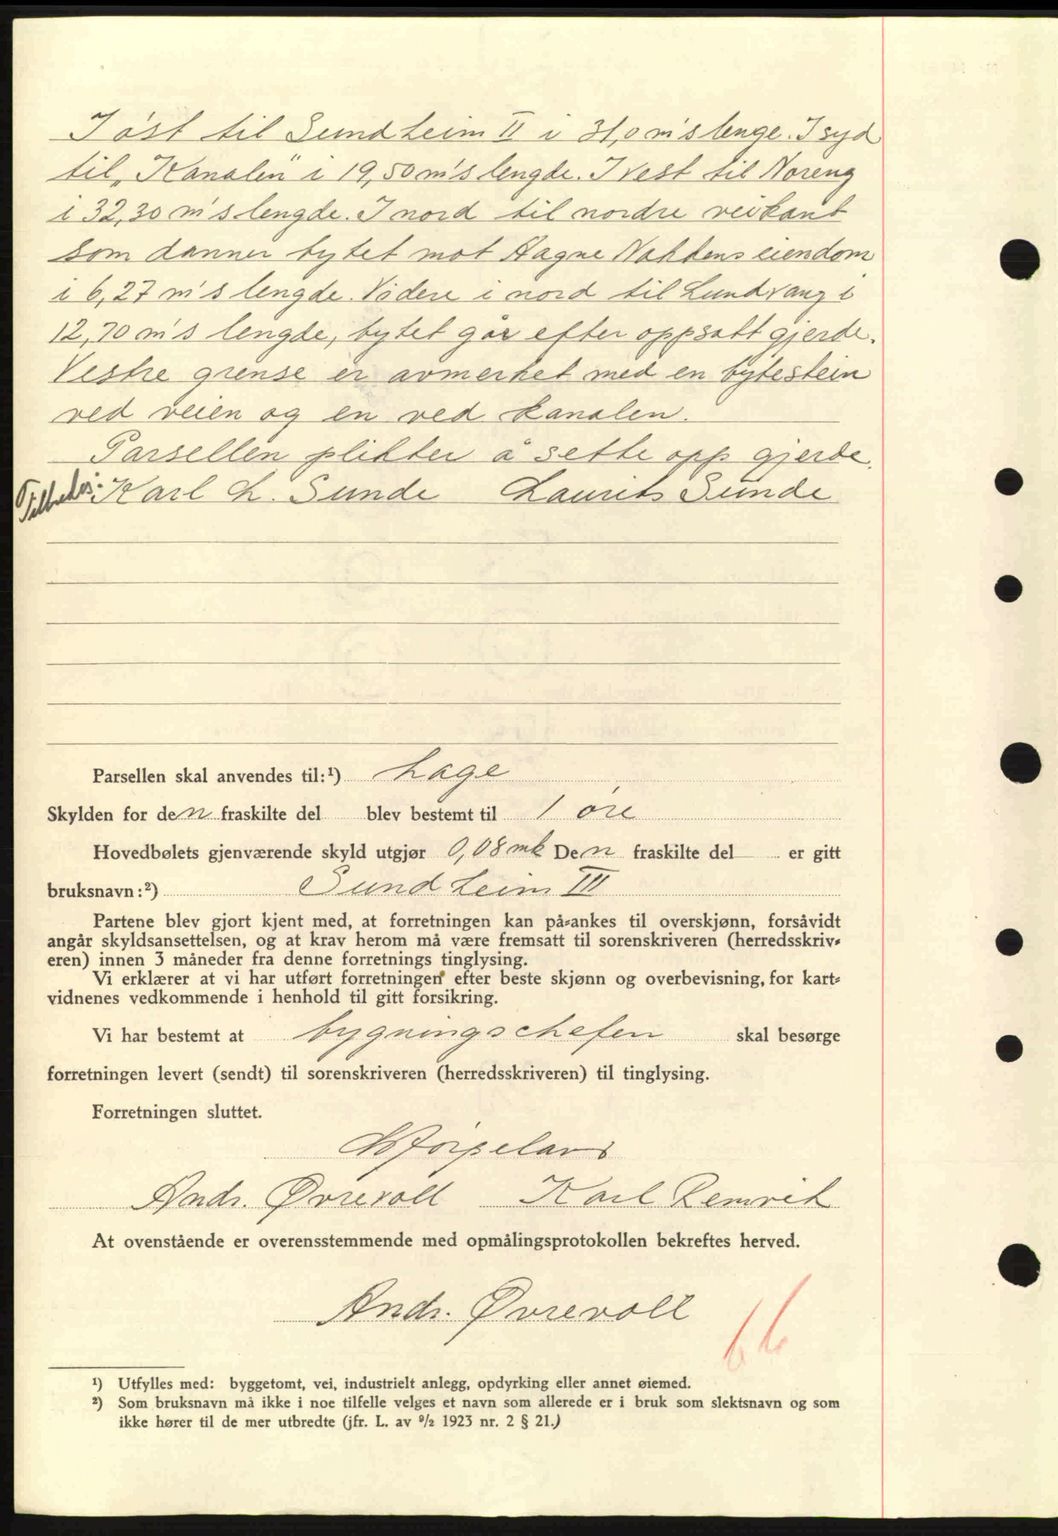 I øst til Sundheim II i 31,0 m's lenge. I syd
til „Kanalen" i 19,50 m's lengde. I Vest til Noreng
i 32,30 m's lengde. I nord til nordre veikant
som danner bytet mot Aagne Nakkens eiendom
i 6,27 m's lengde. Videre i nord til Lundvang i
12,70 m's lengde, bytet går efter oppsatt gjerde.
Vestre grense er avmerket med en bytestein
ved veien og en ved kanalen.
Parsellen plikter å sette opp gjerde.
Karl L. Sunde Laurits Sunde
Parsellen skal anvendes til:¹) Hage
Skylden for den fraskilte del blev bestemt til 1 øre
Hovedbølets gjenværende skyld utgjør 0,08 mk Den fraskilte del er gitt
bruksnavn:²) Sundheim III
Partene blev gjort kjent med, at forretningen kan på-ankes til overskjønn, forsåvidt
angår skyldsansettelsen, og at krav herom må være fremsatt til sorenskriveren (herredsskriv-
eren) innen 3 måneder fra denne forretnings tinglysing.
Vi erklærer at vi har utført forretningen efter beste skjønn og overbevisning, for kart-
vidnenes vedkommende i henhold til gitt forsikring.
Vi har bestemt at bygningschefen skal besørge
forretningen levert (sendt) til sorenskriveren (herredsskriveren) til tinglysing.
Forretningen sluttet.
Andr. Øvrevoll Karl Remvik
At ovenstående er overensstemmende med opmålingsprotokollen bekreftes herved.
Andr. Øvrevoll
66
¹) Utfylles med: byggetomt, vei, industrielt anlegg, opdyrking eller annet øiemed.
²) Som bruksnavn må ikke i noe tilfelle velges et navn som allerede er i bruk som slektsnavn og som
ikke hører til de mer utbredte (jfr. L. av ⁹/₂ 1923 nr. 2 § 21.)